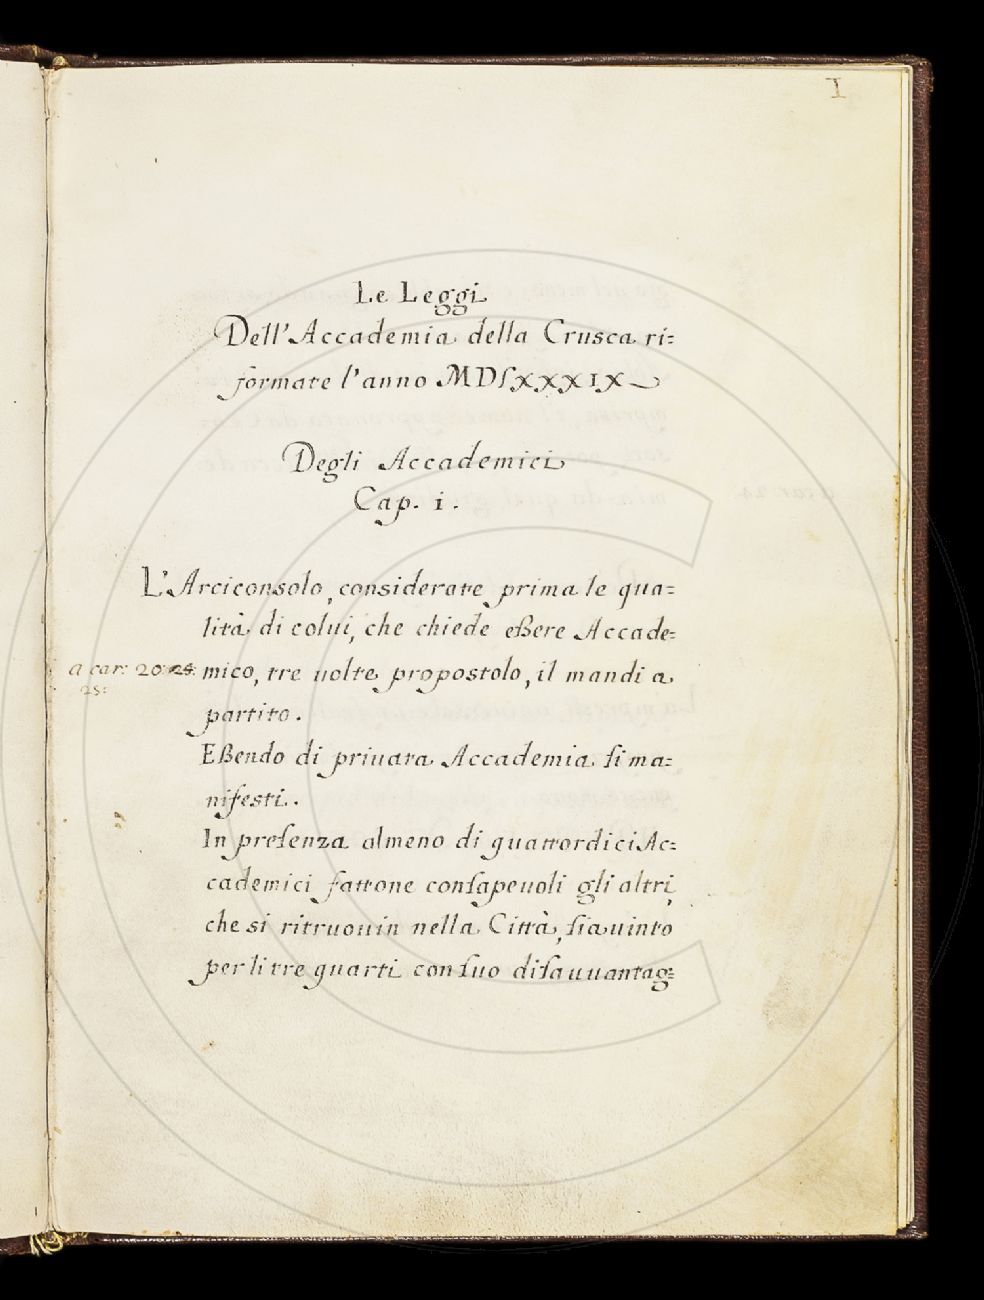 I
Le Leggi
Dell'Accademia della Crusca ri=
formate l'anno MDLXXXIX
Degli Accademici
Cap. i.
L'Arciconsolo, considerate prima le qua=
lità di colui, che chiede eßere Accade=
a car: 20: 24: mico, tre uolte propostolo, il mandi a
25: partito.
Eßendo di priuata Accademia ſi ma=
nifesti.
In preſenza almeno di quattordici Ac=
cademici fattone conſapeuoli gli altri,
che si ritruouin nella Città, ſia uinto
per li tre quarti con ſuo diſauuantag=